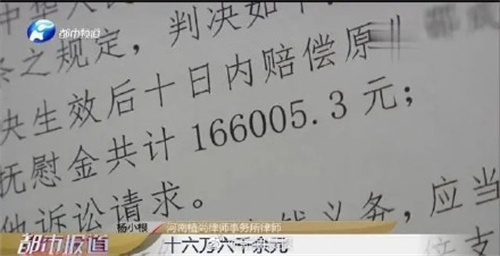 都市报道
中华人民
条之规定，判决如下
决生效后十日内赔偿原
抚慰金共计 166005.3 元；
他诉讼请求。
义务，应当
倍支
杨小根 河南植尚律师事务所律师
都市报道 十六万六千余元